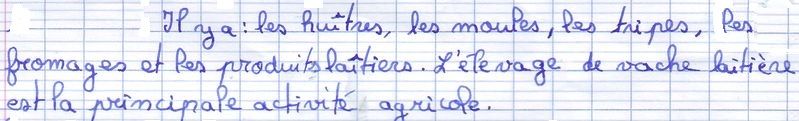 Il y a : les huîtres, les moules, les tripes, les
fromages et les produits laîtiers. L'élevage de vache laitière
est la principale activité agricole.